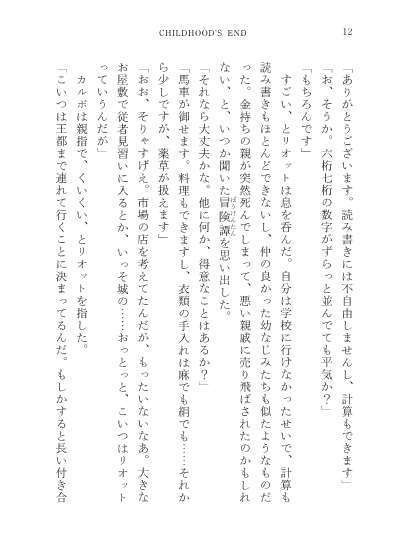 CHILDHOOD'S END
12
「ありがとうございます。読み書きには不自由しませんし、計算もできます」
「お、そうか。六桁七桁の数字がずらっと並んでても平気か？」
「もちろんです」
　すごい、とリオットは息を呑んだ。自分は学校に行けなかったせいで、計算も
読み書きもほとんどできないし、仲の良かった幼なじみたちも似たようなものだ
った。金持ちの親が突然死んでしまって、悪い親戚に売り飛ばされたのかもしれ
ない、と、いつか聞いた冒険譚を思い出した。
「それなら大丈夫かな。他に何か、得意なことはあるか？」
「馬車が御せます。料理もできますし、衣類の手入れは麻でも絹でも……それか
ら少しですが、薬草が扱えます」
「おお、そりゃすげえ。市場の店を考えてたんだが、もったいないなあ。大きな
お屋敷で従者見習いに入るとか、いっそ城の……おっとっと、こいつはリオット
っていうんだが」
　カルボは親指で、くいくい、とリオットを指した。
「こいつは王都まで連れて行くことに決まってるんだ。もしかすると長い付き合